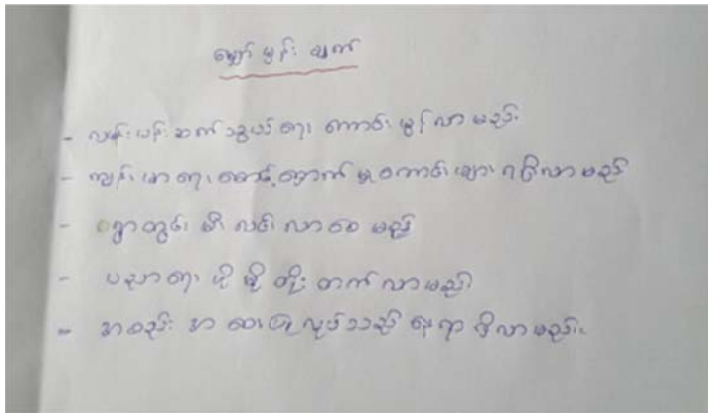 မျှော်မှန်းချက်
- လမ်းပန်းဆက်သွယ်ရေး ကောင်းမွန်လာမည်
- ကျန်းမာရေး စောင့်ရှောက်မှုကောင်းများ ရရှိလာမည်
- ရွာတွင်း မီးလင်းလာစေမည်
- ပညာရေး ပိုမိုတိုးတက်လာမည်
- အစည်းအဝေးပြုလုပ်သည့် နေရာ ရှိလာမည်။